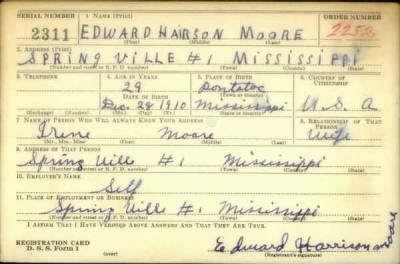 SERIAL NUMBER 1. NAME (Print) ORDER NUMBER
2311 EDWARD HAIRSON MOORE
(First) (Middle) (Last)
2. ADDRESS (Print)
SPRING VILLE #1 MISSISSIPPI
(Number and street or R. F. D. number) (Town) (County) (State)
3. TELEPHONE 4. AGE IN YEARS 5. PLACE OF BIRTH 6. COUNTRY OF CITIZENSHIP
29 Pontotoc
DATE OF BIRTH (Town or county)
Dec. 28 1910 Mississippi U.S.A
(Exchange) (Number) (Mo.) (Day) (Yr.) (State or country)
7. NAME OF PERSON WHO WILL ALWAYS KNOW YOUR ADDRESS 8. RELATIONSHIP OF THAT PERSON
Irene Moore Wife
(Mr., Mrs., Miss) (First) (Middle) (Last)
9. ADDRESS OF THAT PERSON
Spring Ville #1 Mississippi
(Number and street or R. F. D. number) (Town) (County) (State)
10. EMPLOYER'S NAME
Self
11. PLACE OF EMPLOYMENT OR BUSINESS
Spring Ville #1 Mississippi
(Number and street or R. F. D. number) (Town) (County) (State)
I AFFIRM THAT I HAVE VERIFIED ABOVE ANSWERS AND THAT THEY ARE TRUE.
REGISTRATION CARD
D. S. S. Form 1 (over) Edward Harrison Moore
(Registrant's signature)